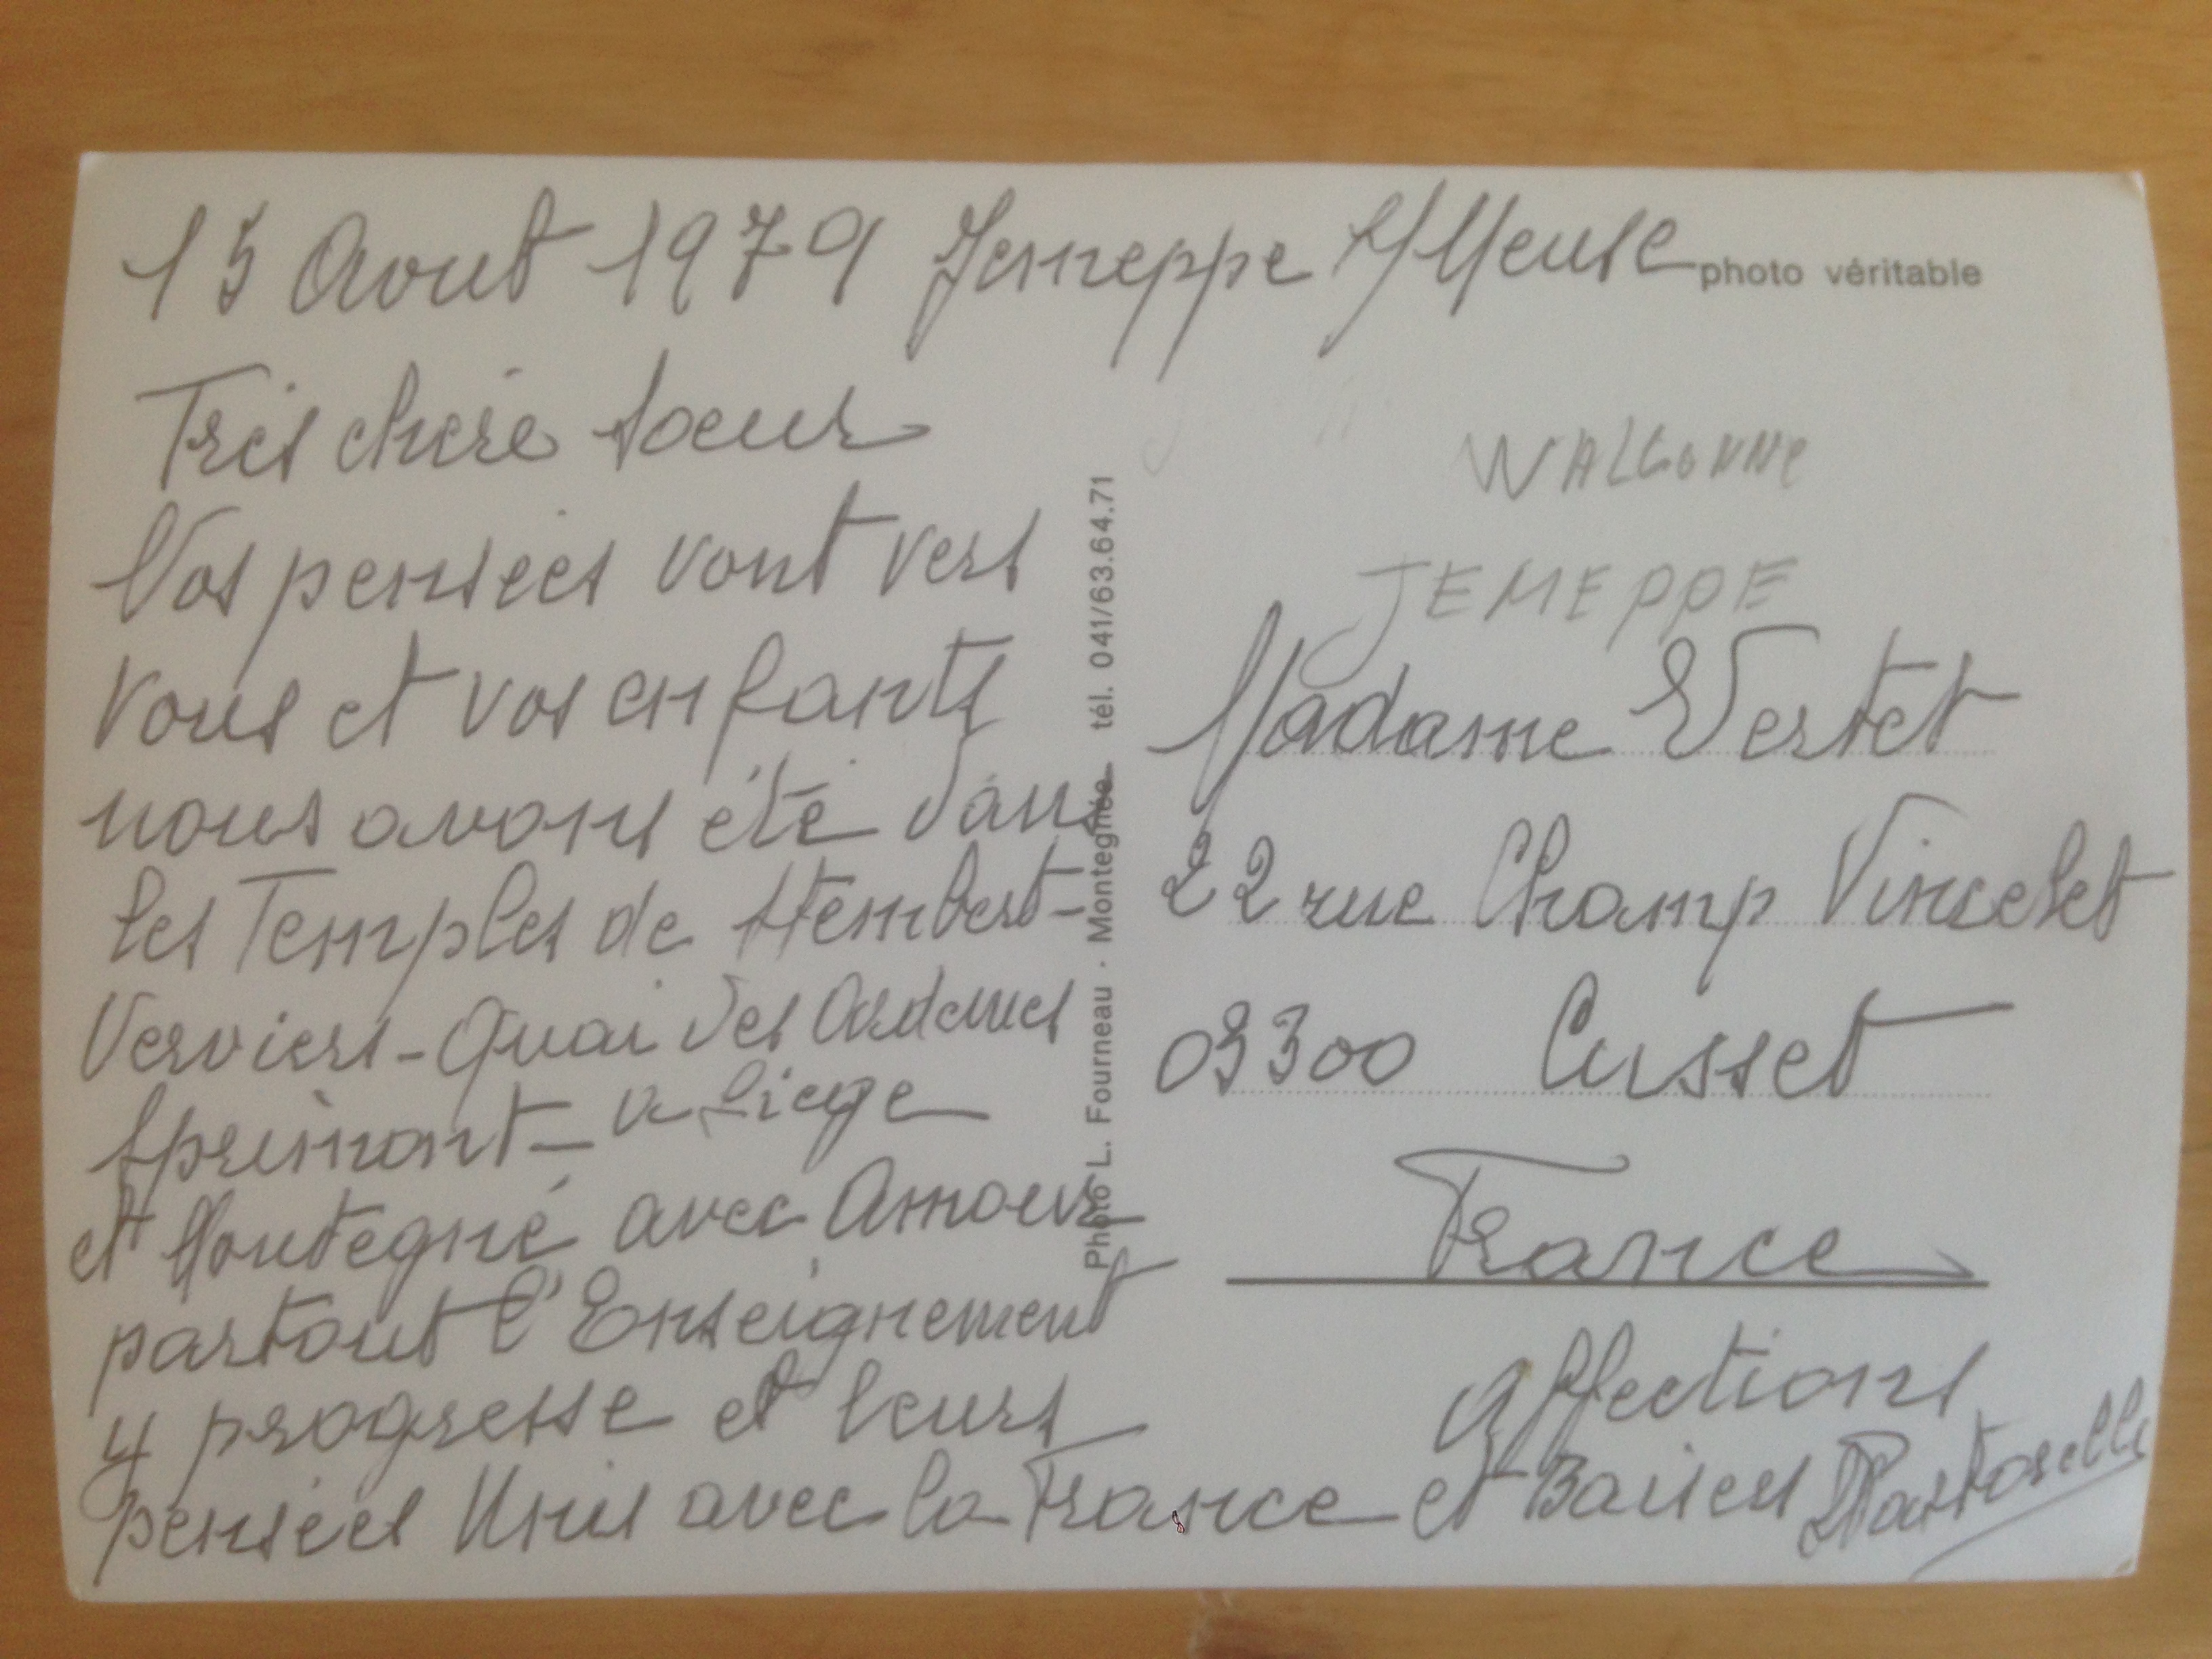 15 Aout 1979 Jemeppe s/Meuse
photo véritable
Très chère soeur
Nos pensées vont vers
vous et vos enfants
nous avons été dans
les Temples de Stembert-
Verviers-Quai des Ardennes
à Liege
Sprimont-
et Montegné avec Amour
partout l'Enseignement
y progresse et leurs
pensées Unis avec la France
Photo L. Fourneau · Montegnée tél. 041/63.64.71
JEMEPPE
Madame Vertet
22 rue Champ Vincelet
03300 Cusset
France
Affections
et Baisers